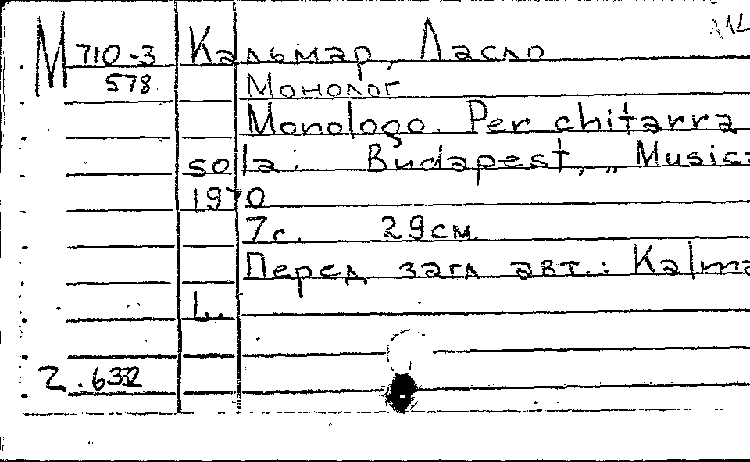 М 710-3 Кальмар, Ласло
578 Монолог
Monologo. Per chitarra
sola. Budapest, „Music
1970
7с. 29см
Перед загл авт.: Kalma
L.
2.632